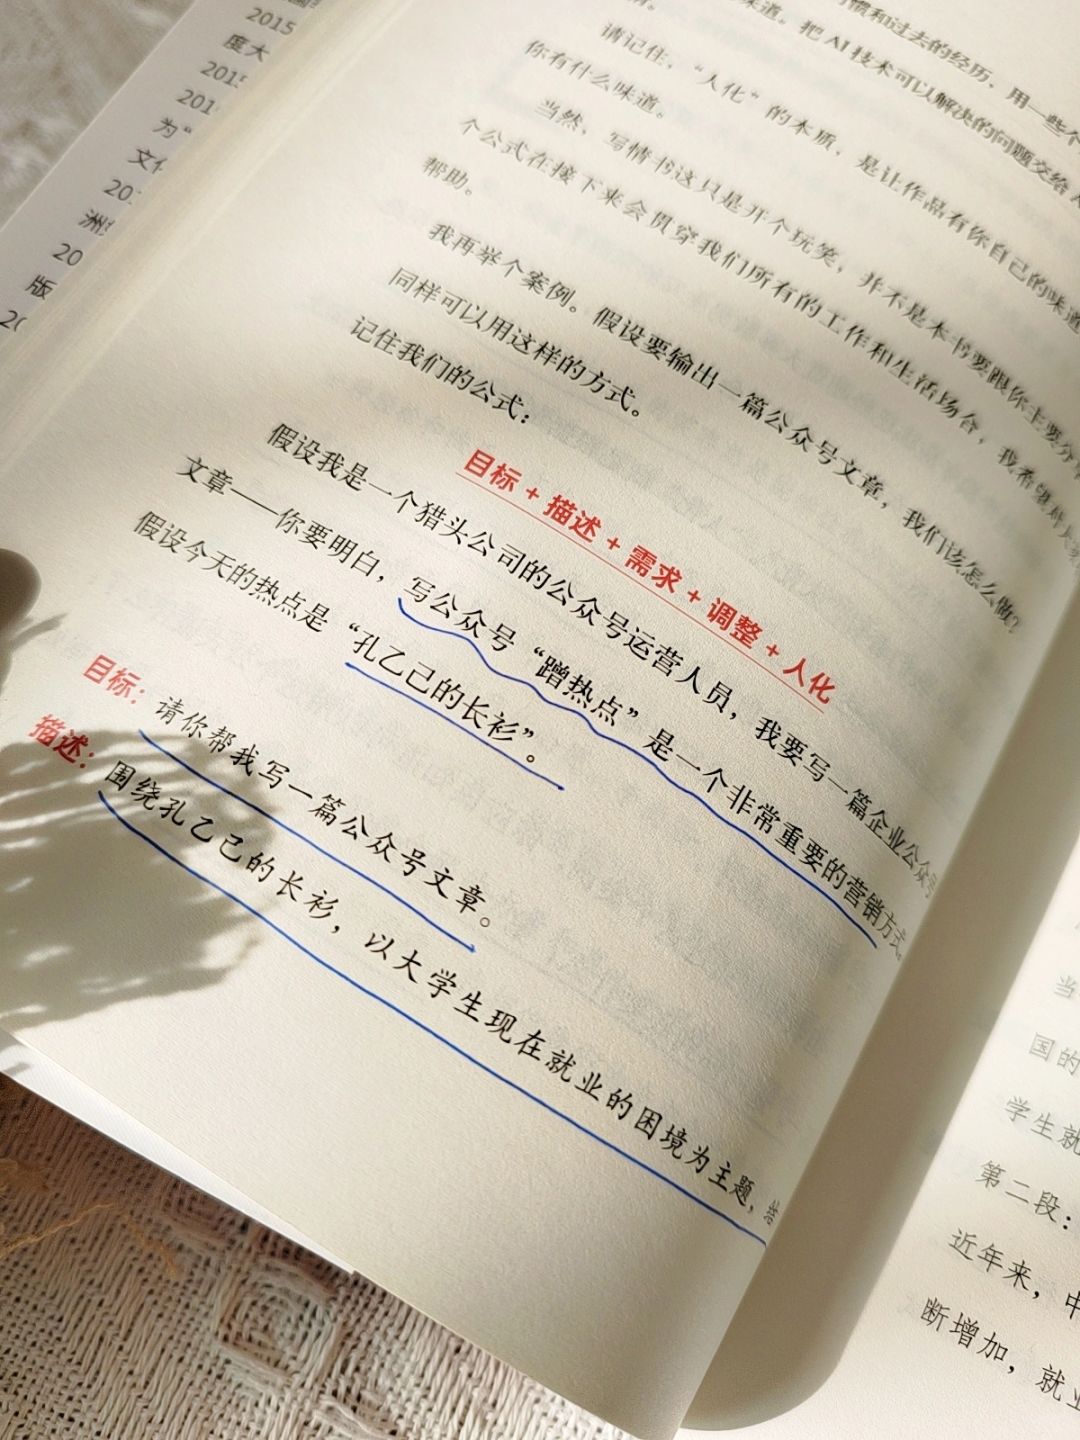 2015
度大
2015
201
为"
文件
201
洲
20
版
20
惯和过去的经历，用一些个
味道。把 AI 技术可以解决的问题交给
请记住，“人化”的本质，是让作品有你自己的味道
你有什么味道。
当然，写情书这只是开个玩笑，并不是本书要跟你主要分享
个公式在接下来会贯穿我们所有的工作和生活场合，我希望对大家
帮助。
我再举个案例。假设要输出一篇公众号文章，我们该怎么做？
同样可以用这样的方式。
记住我们的公式：
目标 + 描述 + 需求 + 调整 + 人化
假设我是一个猎头公司的公众号运营人员，我要写一篇企业公众号
文章——你要明白，写公众号“蹭热点”是一个非常重要的营销方式。
假设今天的热点是“孔乙己的长衫”。
目标：请你帮我写一篇公众号文章。
描述：围绕孔乙己的长衫，以大学生现在就业的困境为主题，
当
国的
学生就
第二段：
近年来，中
断增加，就业